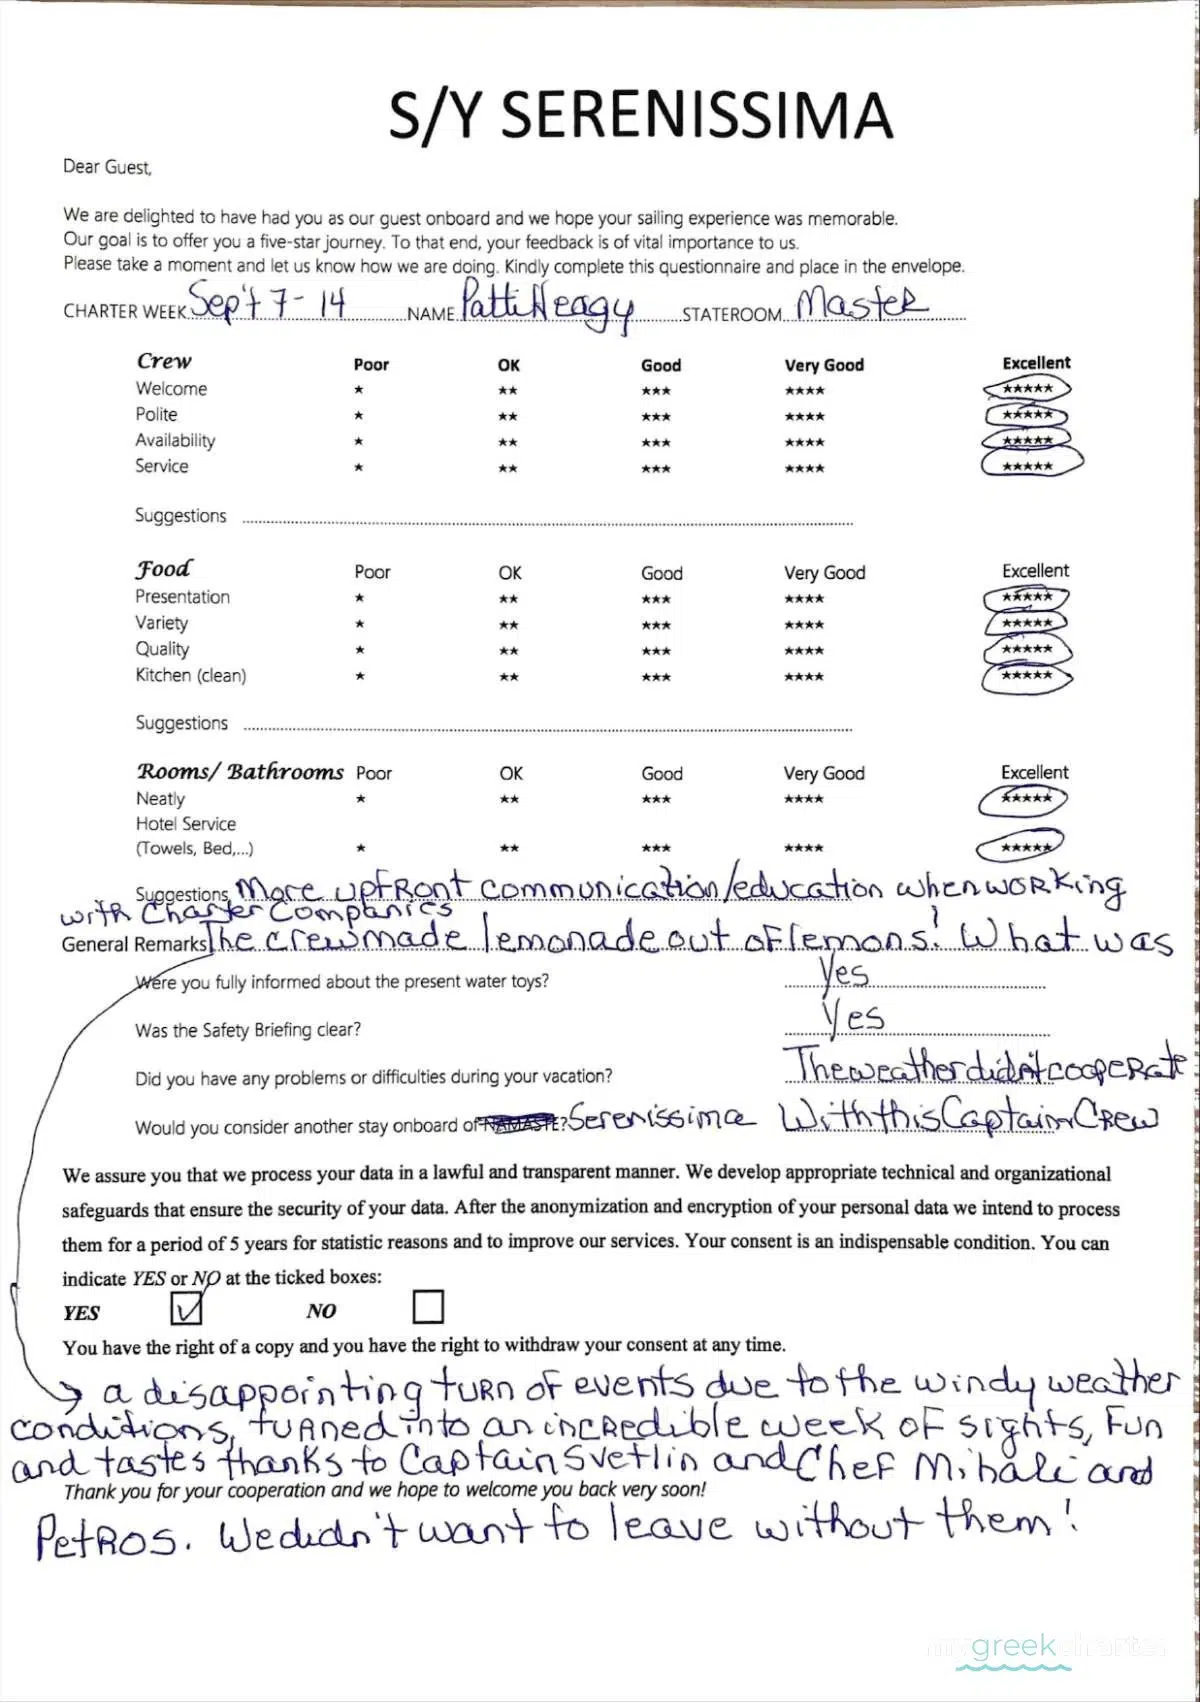 S/Y SERENISSIMA
Dear Guest,
We are delighted to have had you as our guest onboard and we hope your sailing experience was memorable.
Our goal is to offer you a five-star journey. To that end, your feedback is of vital importance to us.
Please take a moment and let us know how we are doing. Kindly complete this questionnaire and place in the envelope.
CHARTER WEEK Sep't 7 - 14 NAME Patti Heagy STATEROOM Master
Crew Poor OK Good Very Good Excellent
Welcome ★ ★★ ★★★ ★★★★ ★★★★★
Polite ★ ★★ ★★★ ★★★★ ★★★★★
Availability ★ ★★ ★★★ ★★★★ ★★★★★
Service ★ ★★ ★★★ ★★★★ ★★★★★
Suggestions
Food Poor OK Good Very Good Excellent
Presentation ★ ★★ ★★★ ★★★★ ★★★★★
Variety ★ ★★ ★★★ ★★★★ ★★★★★
Quality ★ ★★ ★★★ ★★★★ ★★★★★
Kitchen (clean) ★ ★★ ★★★ ★★★★ ★★★★★
Suggestions
Rooms/ Bathrooms Poor OK Good Very Good Excellent
Neatly ★ ★★ ★★★ ★★★★ ★★★★★
Hotel Service
(Towels, Bed,...) ★ ★★ ★★★ ★★★★ ★★★★★
Suggestions More upfront communication/education when working
with Charter Companies
General Remarks The crew made lemonade out of lemons! What was
Were you fully informed about the present water toys? Yes
Was the Safety Briefing clear? Yes
Did you have any problems or difficulties during your vacation? The weather didn't cooperate
Would you consider another stay onboard of NAMASTE? Serenissima With this Captain Crew
We assure you that we process your data in a lawful and transparent manner. We develop appropriate technical and organizational
safeguards that ensure the security of your data. After the anonymization and encryption of your personal data we intend to process
them for a period of 5 years for statistic reasons and to improve our services. Your consent is an indispensable condition. You can
indicate YES or NO at the ticked boxes:
YES NO
You have the right of a copy and you have the right to withdraw your consent at any time.
a disappointing turn of events due to the windy weather
conditions, turned into an incredible week of sights, fun
and tastes thanks to Captain Svetlin and Chef Mihali and
Thank you for your cooperation and we hope to welcome you back very soon!
Petros. We didn't want to leave without them!
mygreekcharter